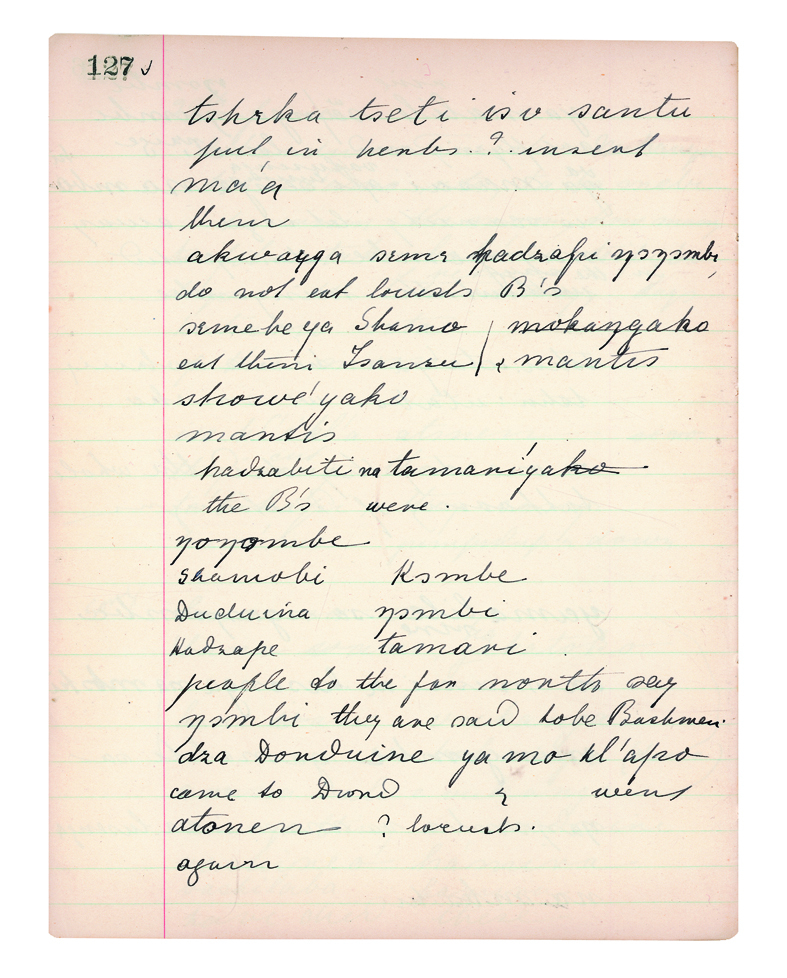 127 √
tshɛka tseti isʋ santu
put in herbs ? insert
ma'a
them
akwaŋga seme hadzapi ŋsŋsmbi
do not eat locusts B's
semeheya Shamo / mokaŋgako
eat them Isanzu / & mantis
showe'yako
mantis
hadzabiti na tamari'yako
the B's were.
yoyombe
Shamobi Ksmbe
Duduina ŋsmbi
Hadzape tamari.
people to the far north say
ŋsmbi they are said to be Bushmen.
dza Donduine ya mo kl'apo
came to Diond & went
atonen ? locusts.
again